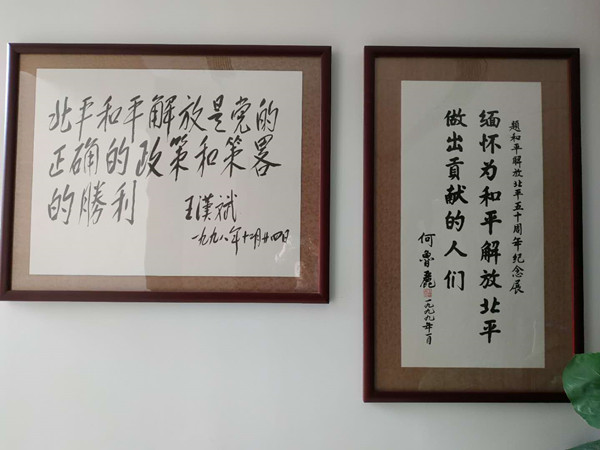 北平和平解放是党的
正确的政策和策畧
的勝利
王漢斌
一九九八年十二月廿四日
题和平解放北平五十周年纪念展
缅怀为和平解放北平
做出贡献的人们
何鲁麗
一九九九年一月